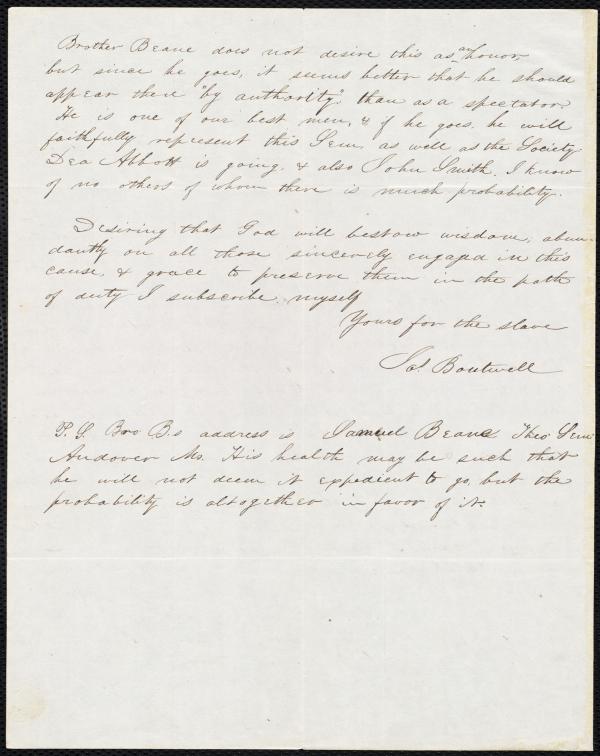 Brother Beane does not desire this as an honor,
but since he goes, it seems better that he should
appear there "by authority", than as a spectator.
He is one of our best men, & if he goes, he will
faithfully represent this Sem. as well as the Society.
Dea Abbott is going, & also John Smith. I know
of no others of whom there is much probability.
Desiring that God will bestow wisdom, abun-
dantly on all those sincerely engaged in this
cause, & grace to preserve them in the path
of duty I subscribe myself
Yours for the slave
Boutwell
P. S. Bro B.s address is Samuel Beane Theo. Sem.
Andover Ms. His health may be such that
he will not deem it expedient to go, but the
probability is altogether in favor of it.